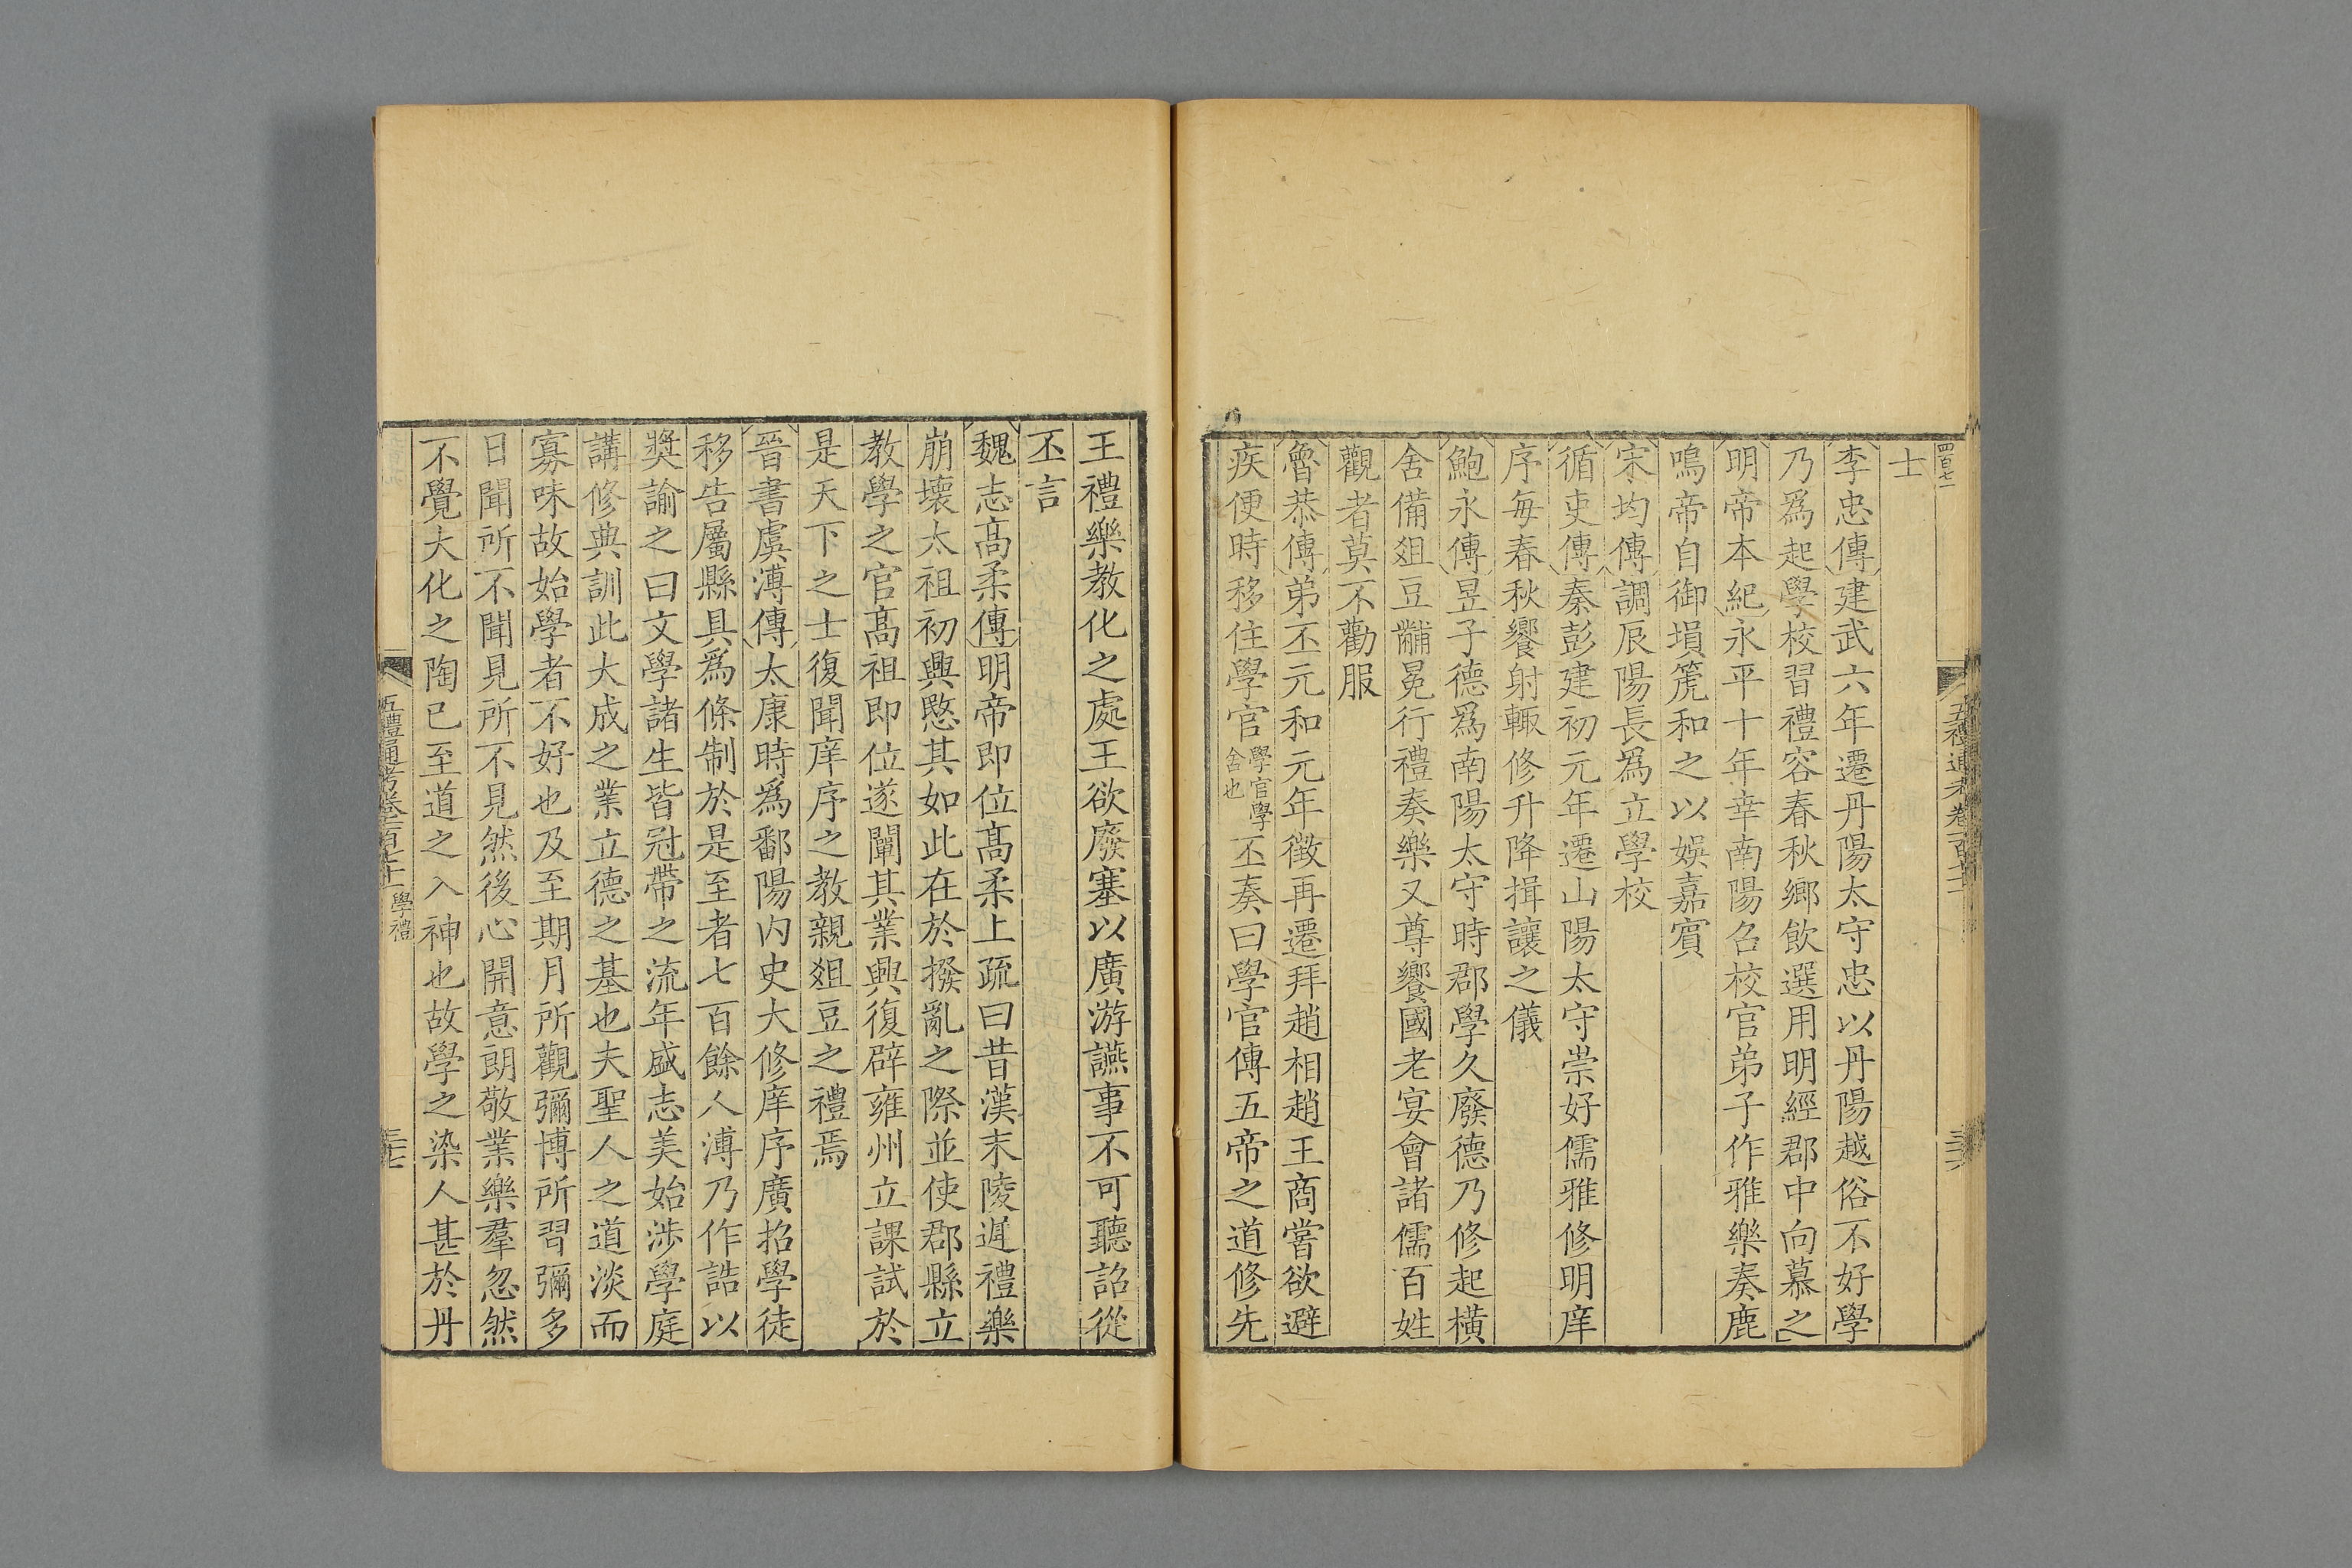 四百七一
五禮通考卷一百七十一
士
李忠傳建武六年遷丹陽太守忠以丹陽越俗不好學
乃爲起學校習禮容春秋鄉飲選用明經郡中向慕之
明帝本紀永平十年幸南陽召校官弟子作雅樂奏鹿
鳴帝自御塤箎和之以娛嘉賓
宋均傳調辰陽長爲立學校
循吏傳秦彭建初元年遷山陽太守崇好儒雅修明庠
序每春秋饗射輒修升降揖讓之儀
鮑永傳昱子德爲南陽太守時郡學久廢德乃修起橫
舍備爼豆黼冕行禮奏樂又尊饗國老宴會諸儒百姓
觀者莫不勸服
魯恭傳弟丕元和元年徵再遷拜趙相趙王商嘗欲避
疾便時移住學官學官學舍也丕奏曰學官傳五帝之道修先
王禮樂教化之處王欲廢塞以廣游讌事不可聽詔從
丕言
魏志高柔傳明帝即位高柔上疏曰昔漢末陵遲禮樂
崩壞太祖初興愍其如此在於撥亂之際並使郡縣立
教學之官高祖即位遂闡其業興復辟雍州立課試於
是天下之士復聞庠序之教親爼豆之禮焉
晉書虞溥傳太康時爲鄱陽内史大修庠序廣招學徒
移告屬縣具爲條制於是至者七百餘人溥乃作誥以
奬諭之曰文學諸生皆冠帶之流年盛志美始涉學庭
講修典訓此大成之業立德之基也夫聖人之道淡而
寡味故始學者不好也及至期月所觀彌博所習彌多
日聞所不聞見所不見然後心開意朗敬業樂羣忽然
不覺大化之陶已至道之入神也故學之染人甚於丹
五禮通考卷一百七十一 學禮
三七